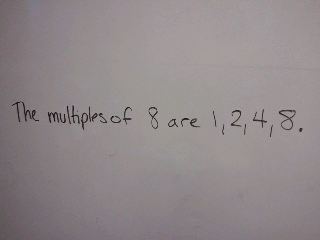 The multiples of 8 are 1, 2, 4, 8.